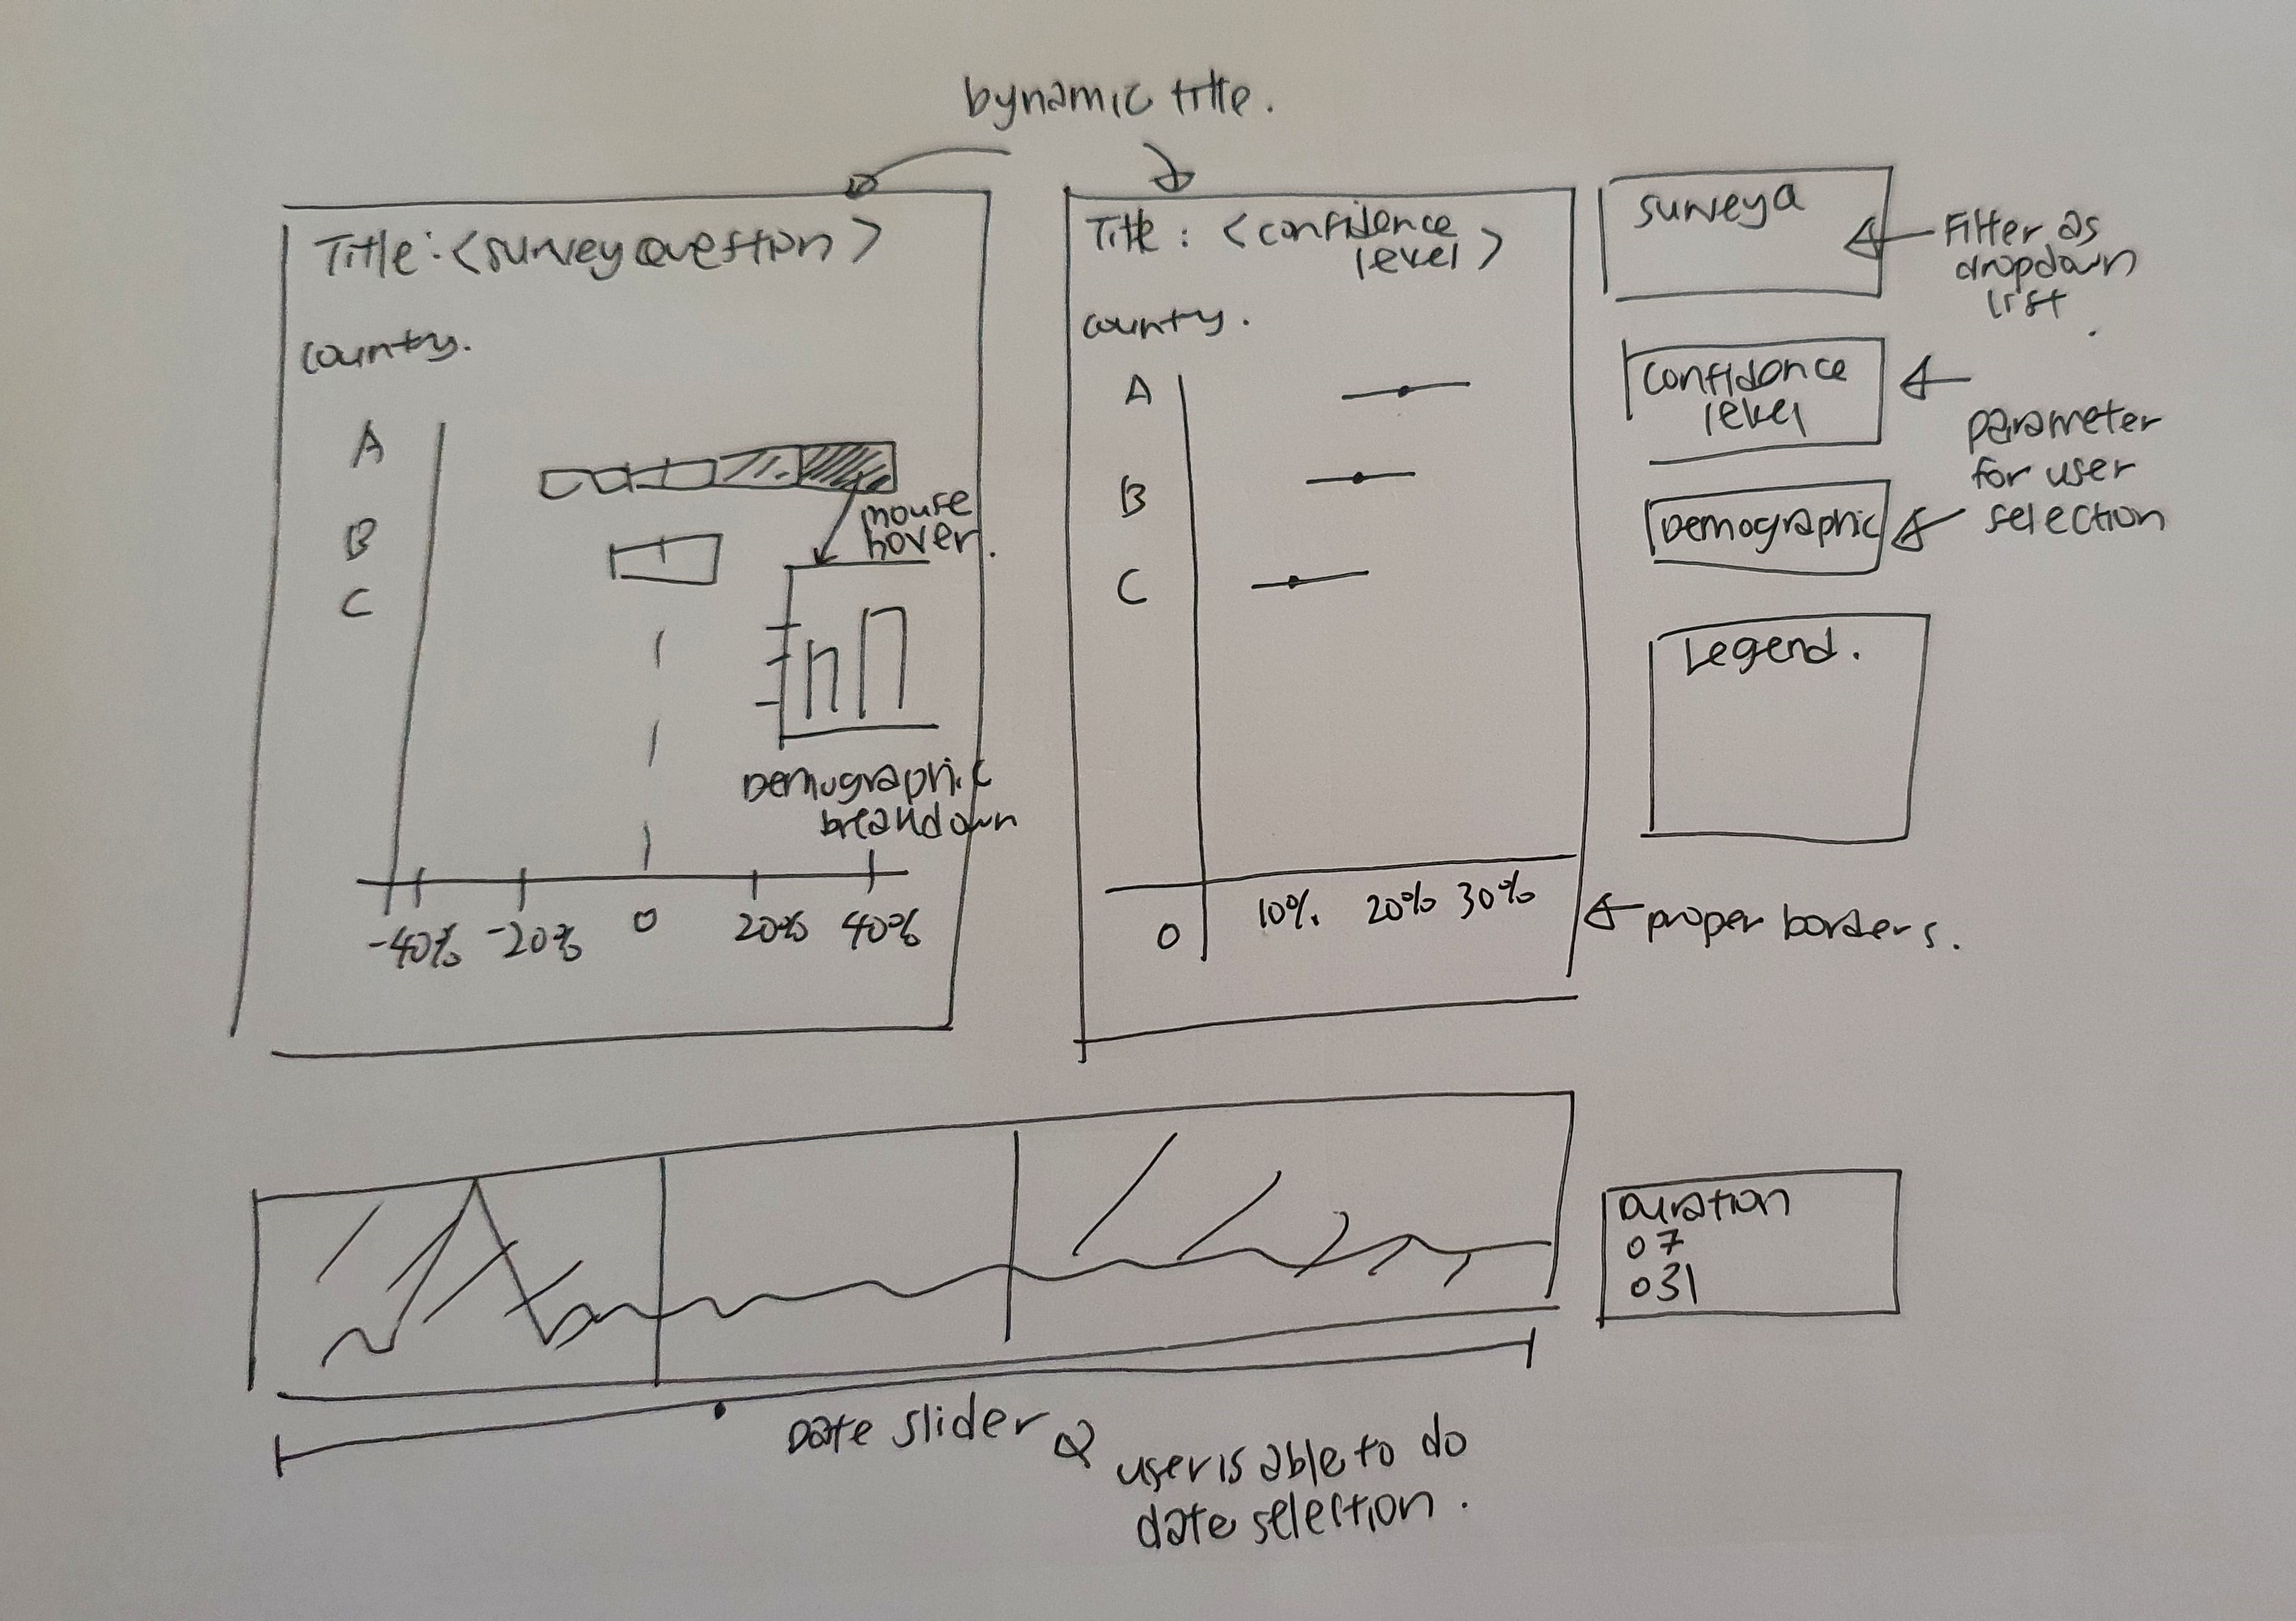 bynamic title.
Title: <survey question>
country.
A
B
C
mouse
hover.
Demographic
breakdown
-40% -20% 0 20% 40%
Title: <confidence
level>
country.
A
B
C
0 10% 20% 30%
survey Q
Filter as
dropdown
list.
confidence
level
parameter
for user
selection
Demographic
Legend.
proper borders.
Duration
07
031
Date slider &
user is able to do
date selection.